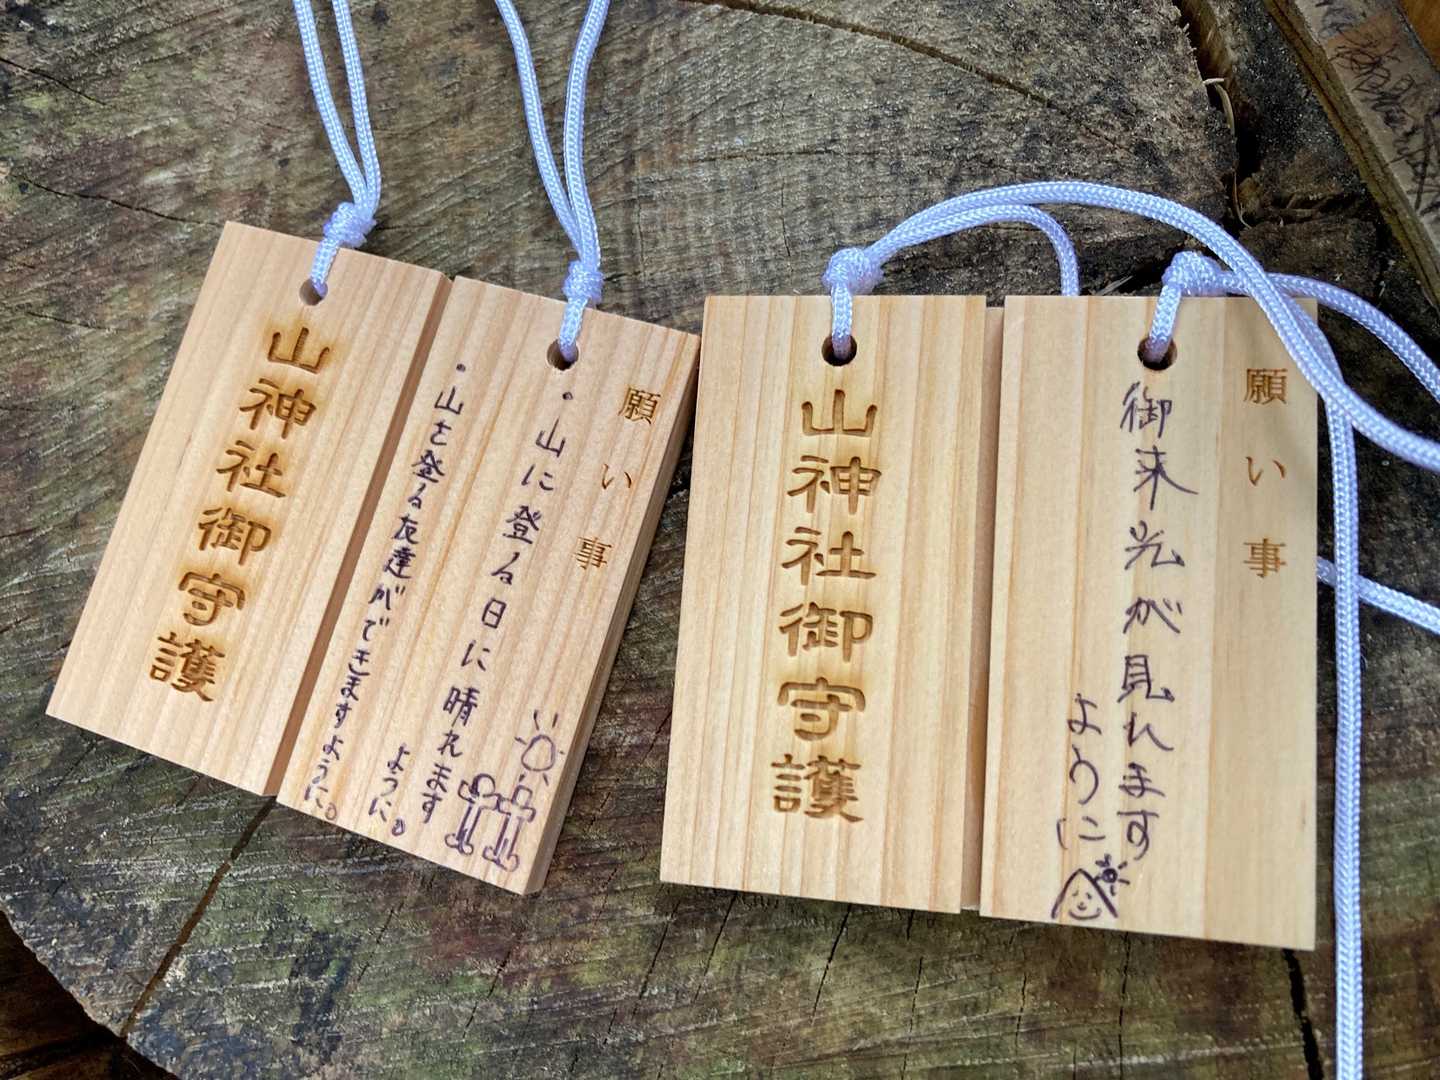 山神社御守護
願い事
・山に登る日に晴れます
ように。
・山を登る友達ができますように。
山神社御守護
願い事
御来光が見れます
ように